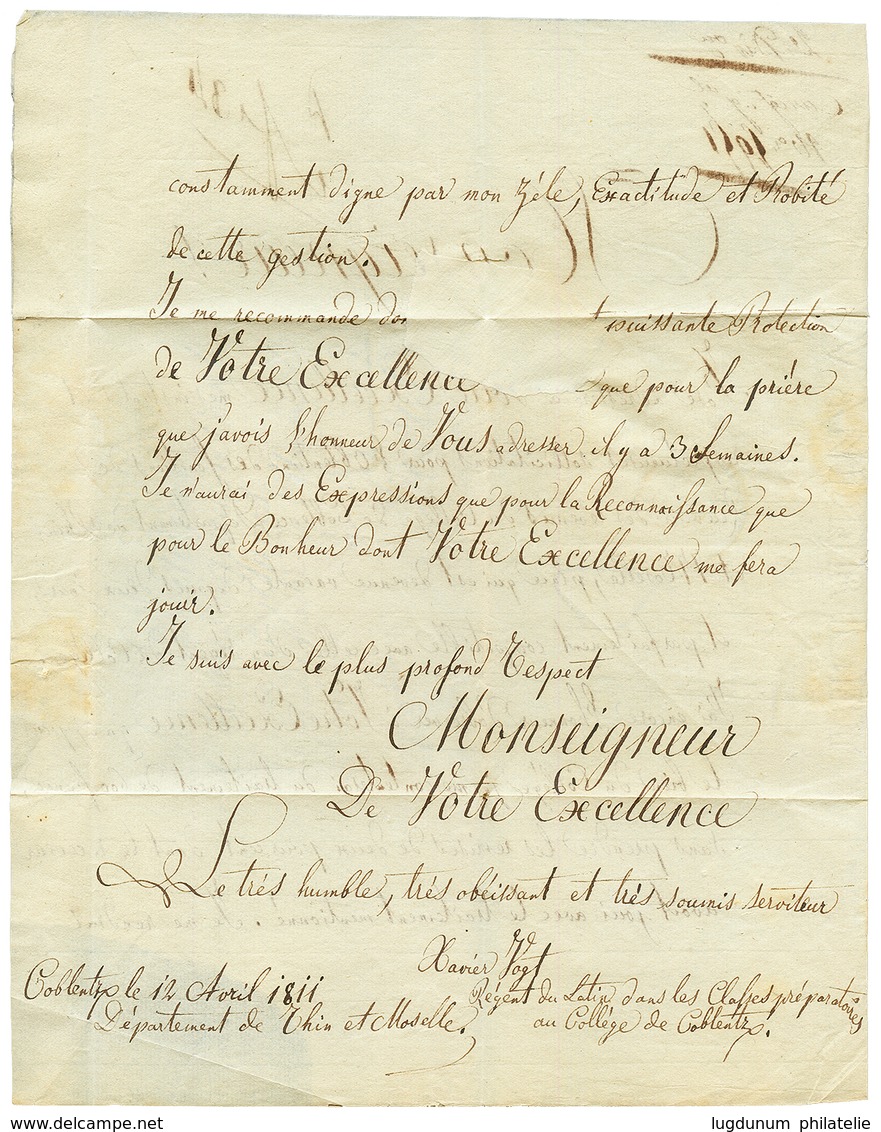 constamment digne par mon zéle, Exactitude et Probité
de cette gestion.
Je me recommande puissante Protection
de Votre Excellence que pour la priére
que j'avois l'honneur de Vous adresser il y a 3 Semaines.
Je n'aurai des Expressions que pour la Reconnoissance que
pour le Bonheur dont Votre Excellence me fera
jouir.
Je suis avec le plus profond Respect
Monseigneur
De Votre Excellence
Le trés humble, trés obéissant et trés soumis serviteur
Xavier Vogt
Coblentz le 12 Avril 1811
Régent du Latin dans les Classes préparatoires
Département de Rhin et Moselle.
au Collége de Coblentz.
www.delcampe.net
lugdunum philatelie